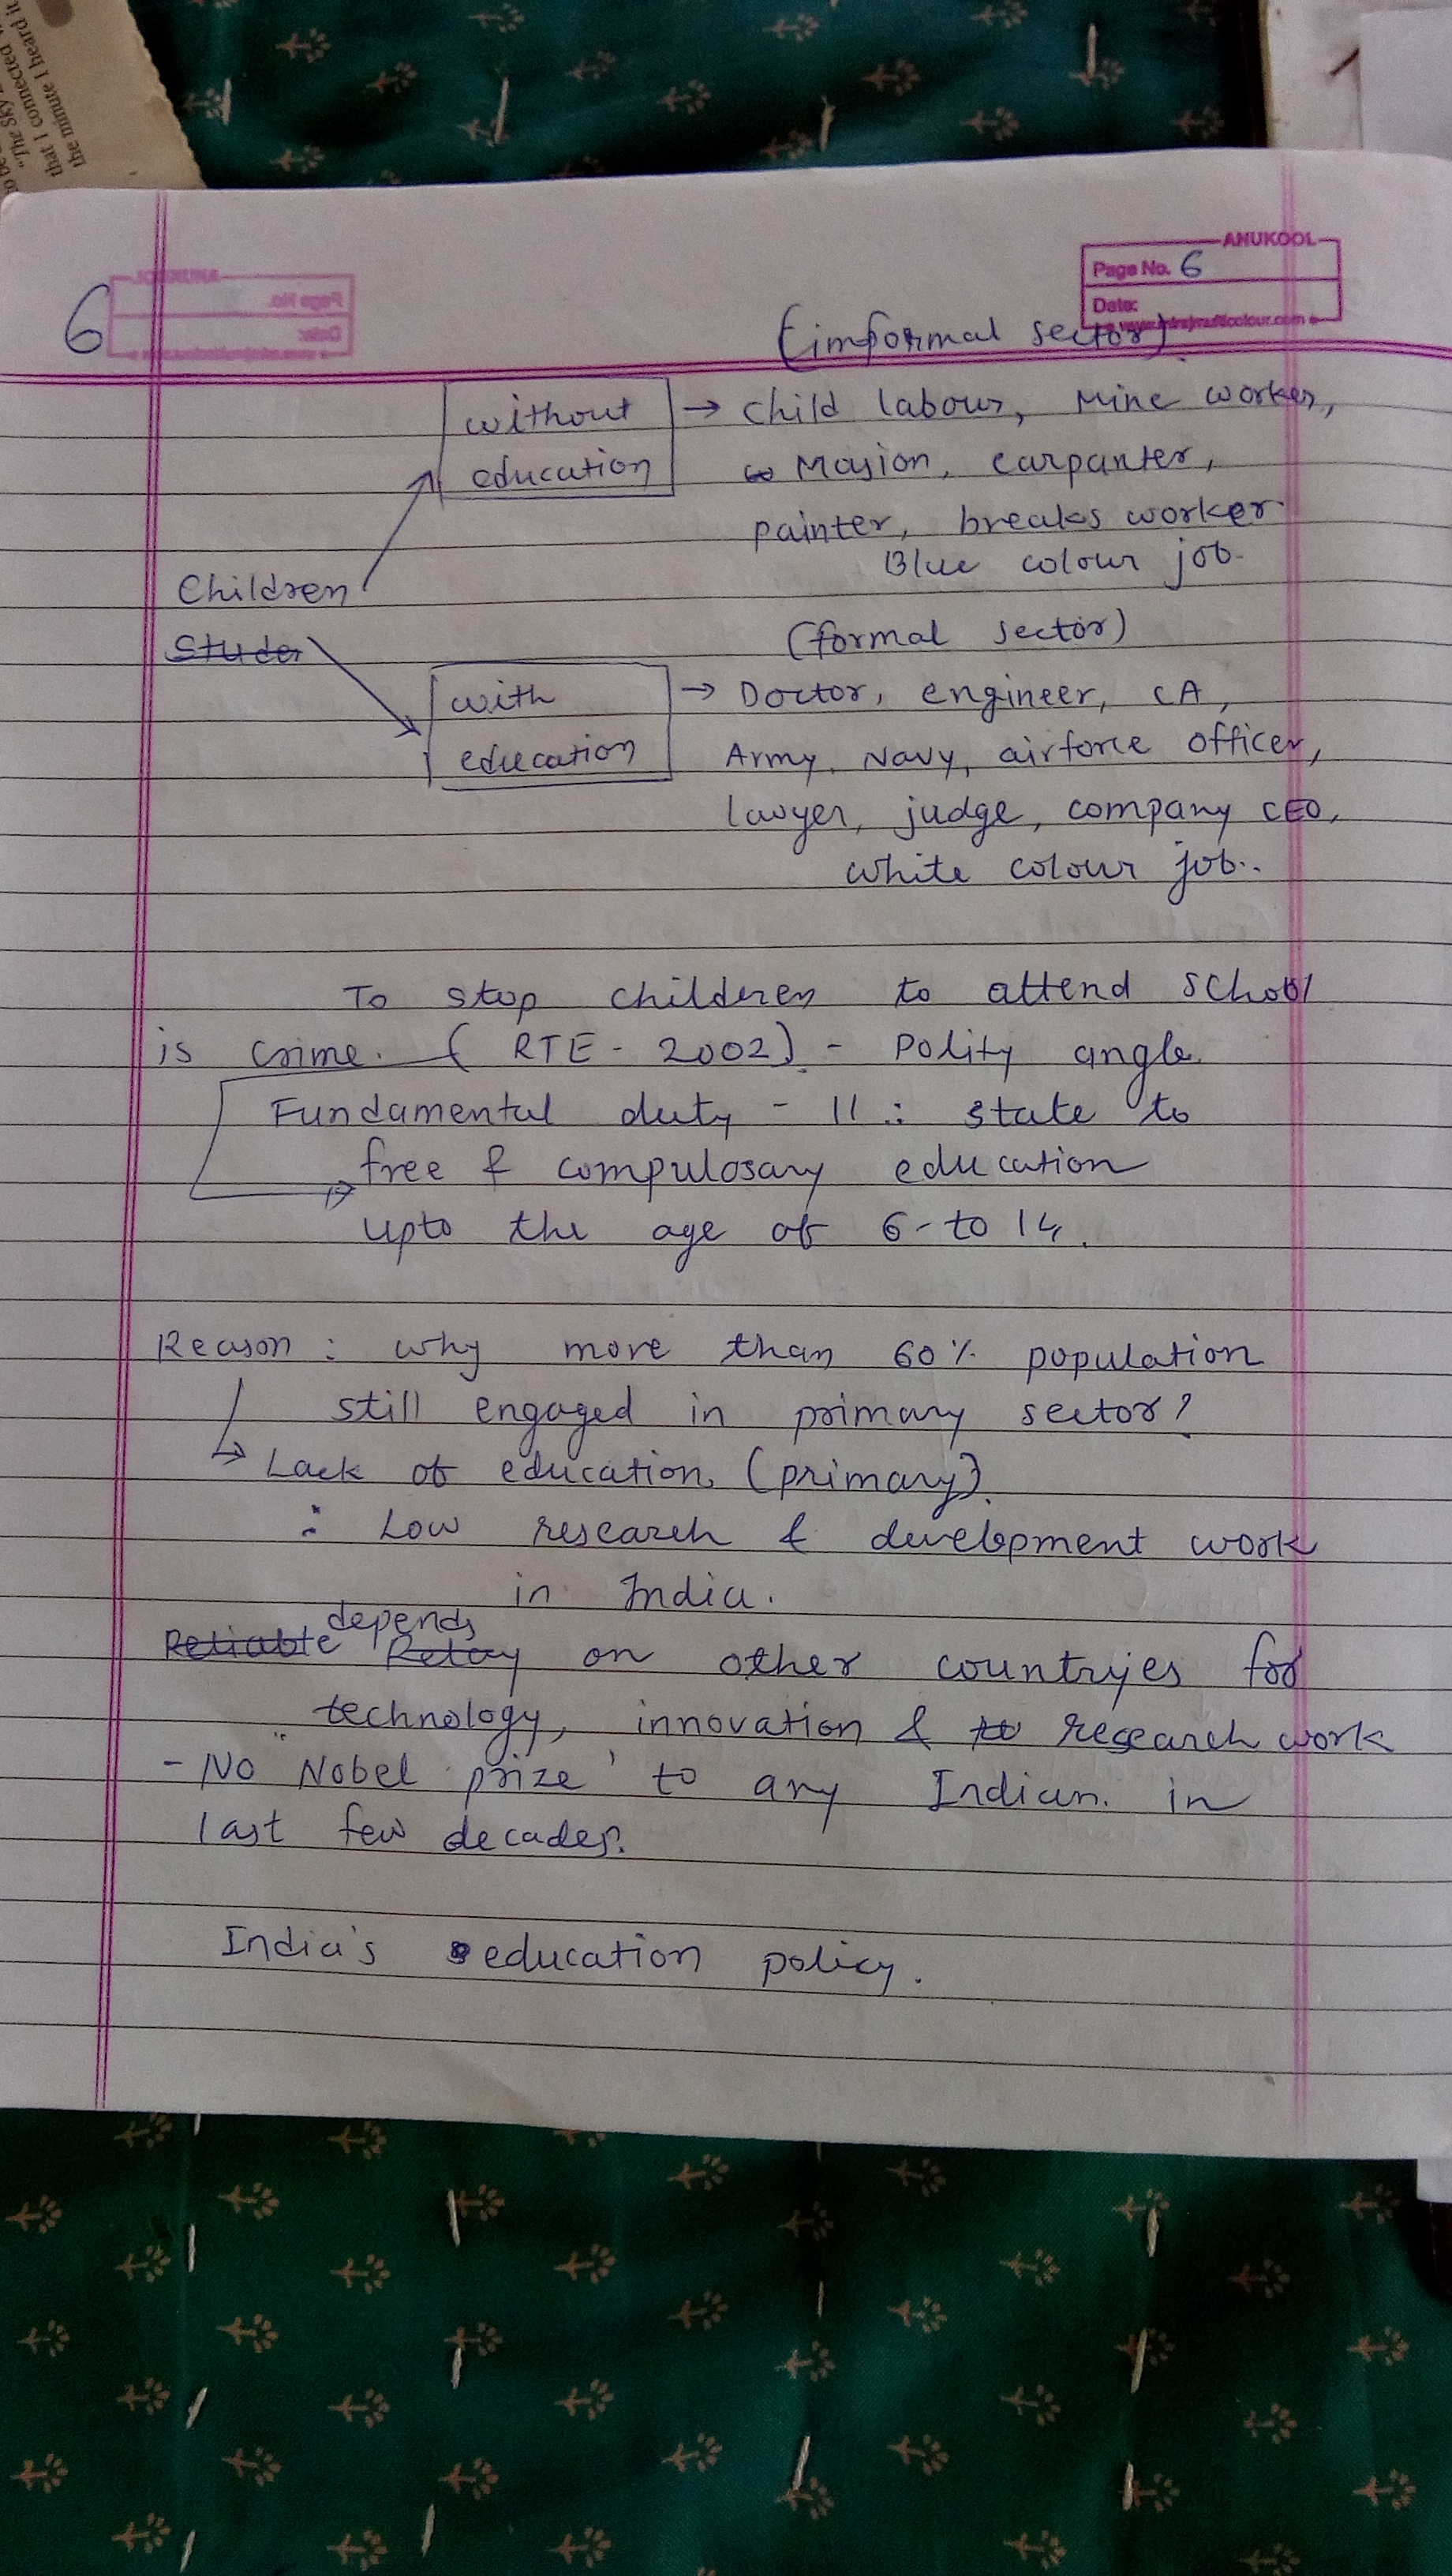 "The Sky
that I connected
the minute I heard it
ANUKOOL
Page No. 6
Date:
6
(imformal sector)
without education → child labour, Mine worker,
Masion, carpanter,
painter, breaks worker
Blue colour job.
Children
Studer
(formal sector)
with education → Doctor, engineer, CA,
Army, Navy, airforce officer,
lawyer, judge, company CEO,
white colour job..
To stop childeren to attend school
is crime. (RTE - 2002) - Polity angle.
Fundamental duty - 11 : state to
free & compulosary education
upto the age of 6-to 14.
Reason : why more than 60% population
still engaged in primary sector?
→ Lack of education. (primary)
: Low research & development work
in India.
depends
Reliable Relay on other countryies for
technology, innovation & research work
- No "Nobel prize' to any Indian. in
last few decades.
India's education policy.